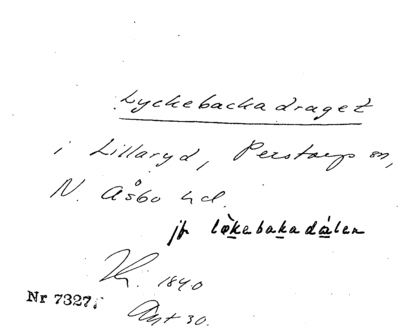 Lyckebackadraget
i Lillaryd, Perstorps sn,
N. Åsbo hd.
jfr lökebakadálen
1840
Nr 7327.
30.